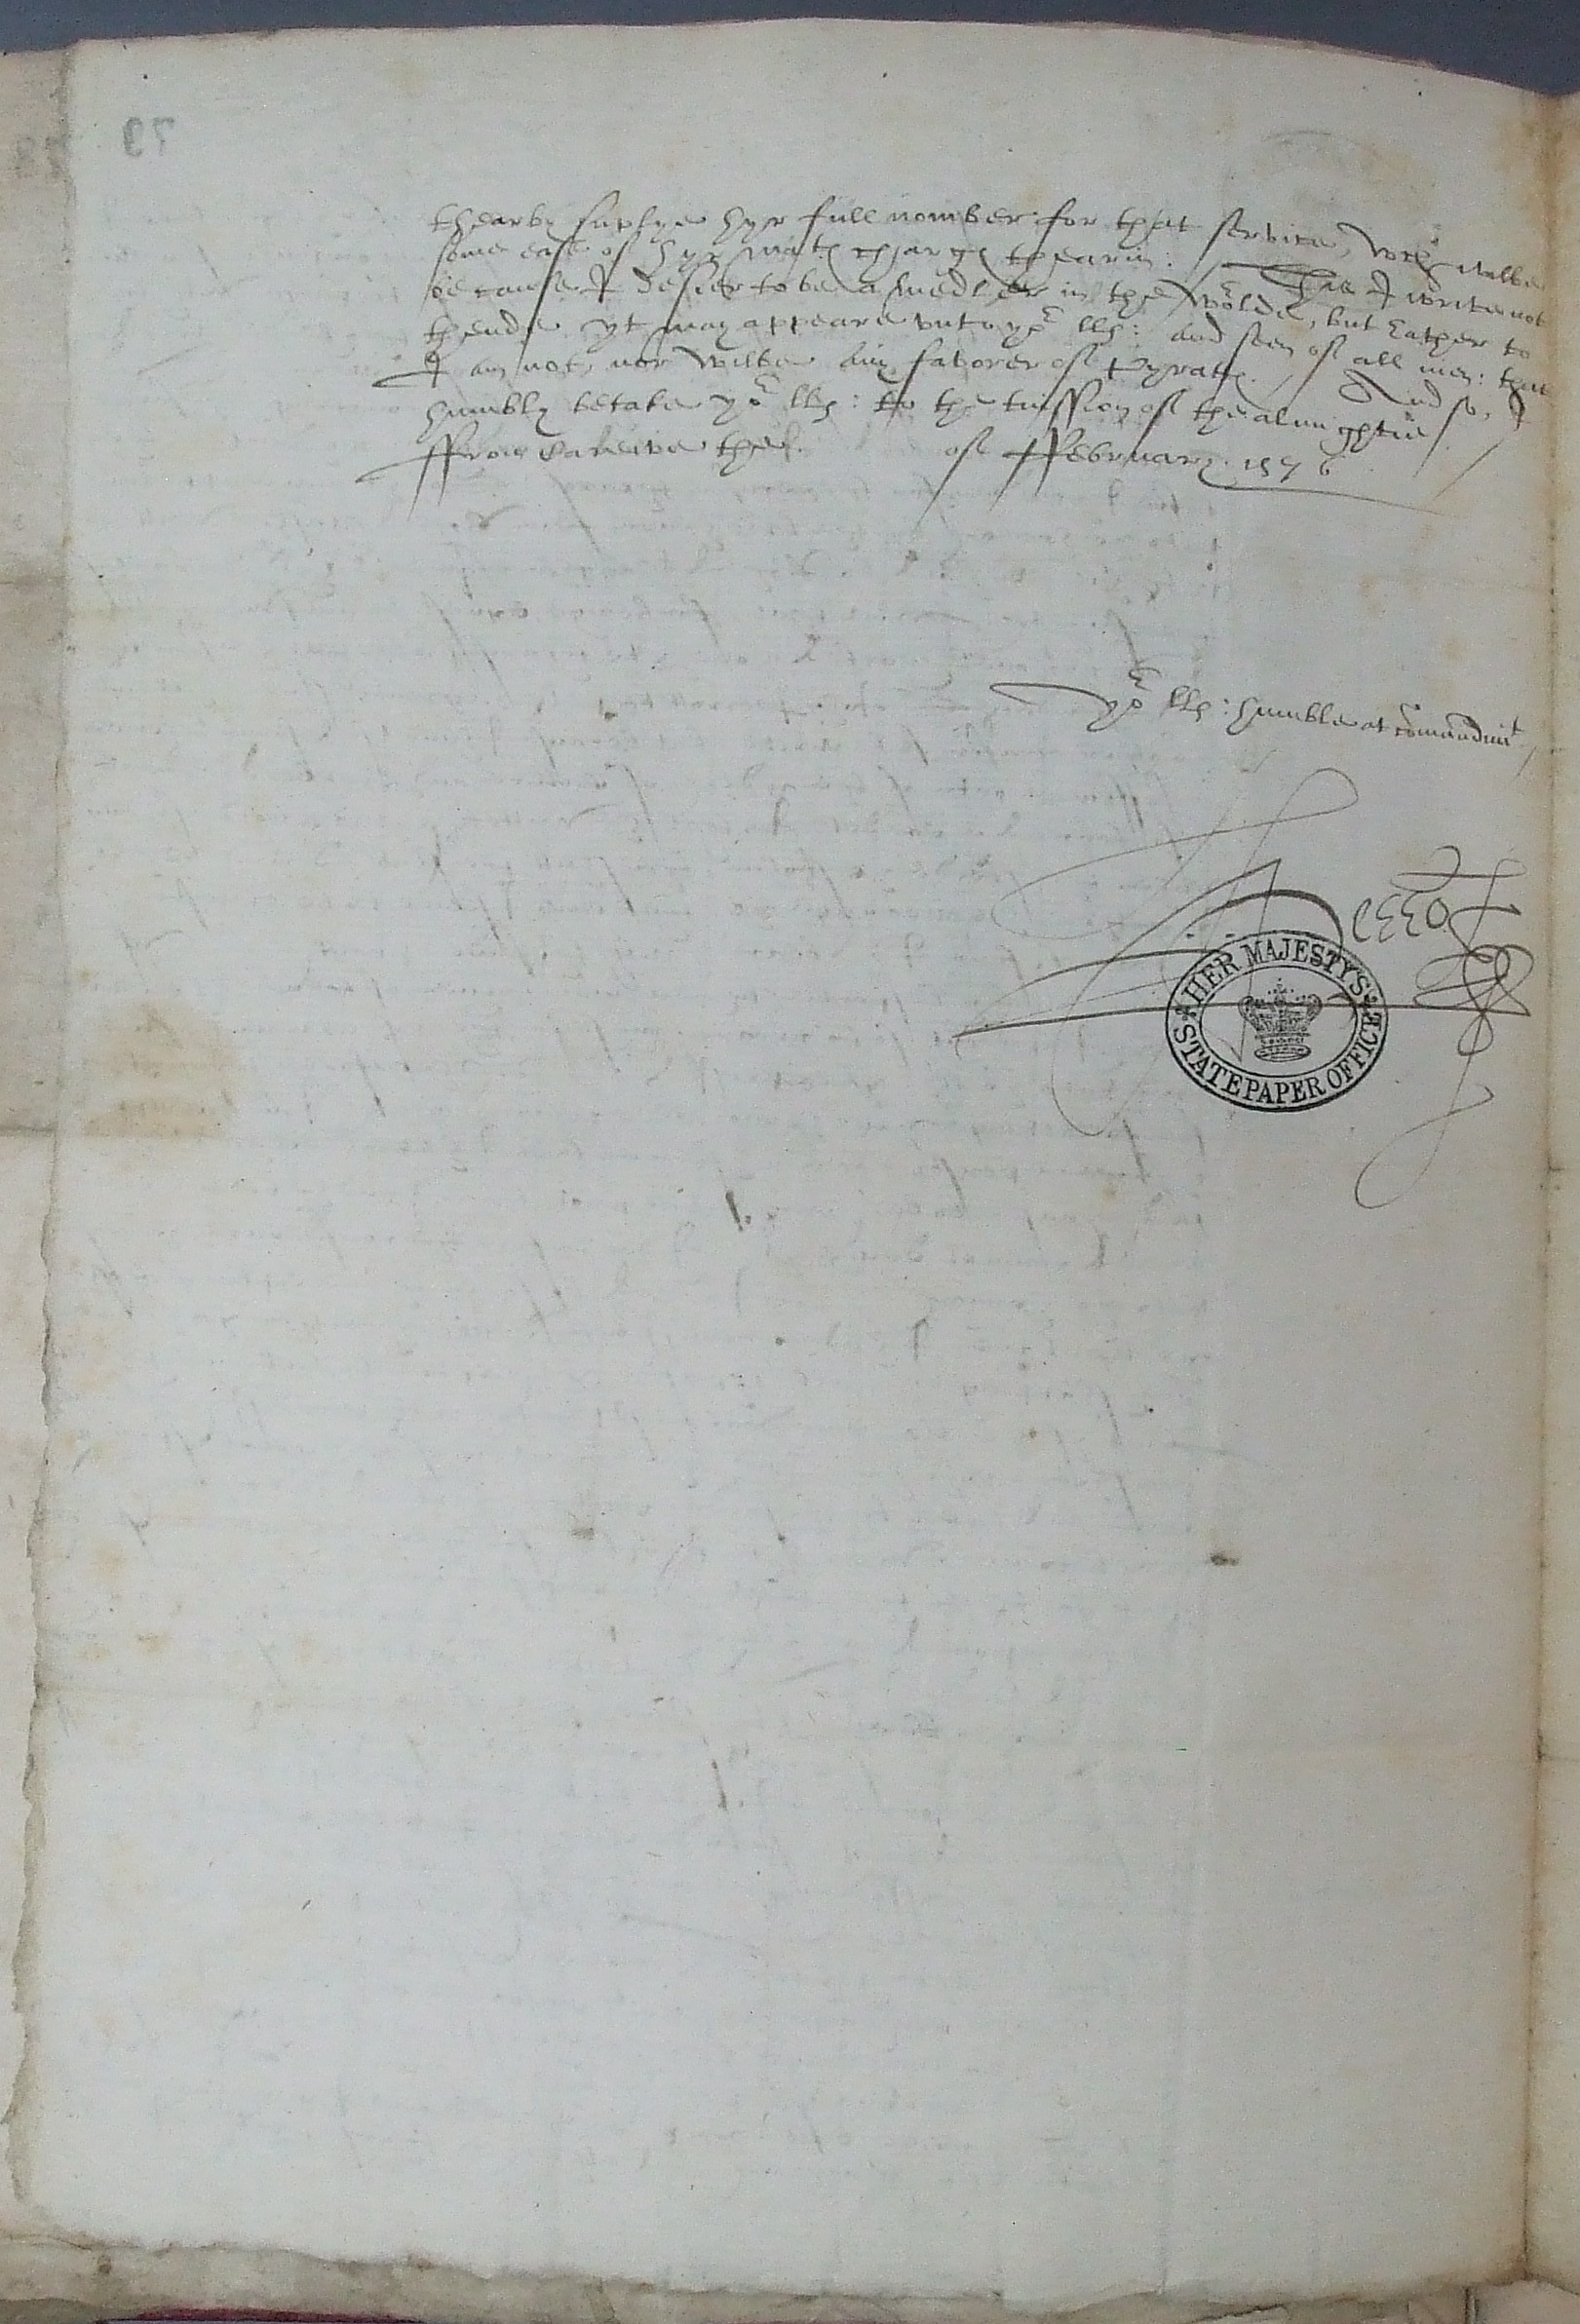 79
thearby suplye hyr full nomber for that service, wch wilbe
some ease of hyr Mats charge thearin: This I write not
because I desier to be a medler in the worlde, but rather to
thende yt may appeare vnto yor llp: and seen of all men: that
I am not, nor wilbe any favorer of Pyrats. / And so, I
humbly betake yor llp: to the tuission of the almightie /
ffrom the of ffebruary. 1576
yor llp: humble at comandmt /
HER MAJESTY'S
STATE PAPER OFFICE